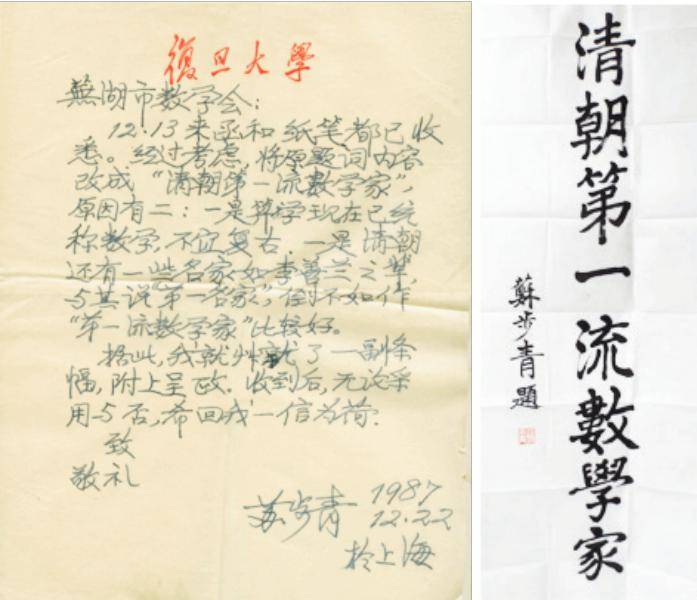 復旦大學
蕪湖市数学会：
12.13来函和纸笔都已收
悉。经过考虑，将原题词内容
改成“清朝第一流数学家”，
原因有二：一是算学现在已统
称数学，不宜复古，一是清朝
还有一些名家如李善兰之辈，
与其说“第一名家”，倒不如作
“第一流数学家”比较好。
据此，我就草就了一副条
幅，附上呈政。收到后，无论采
用与否，希回我一信为荷．
致
敬礼
苏步青 1987
12.22
於上海
清朝第一流數學家
蘇步青題